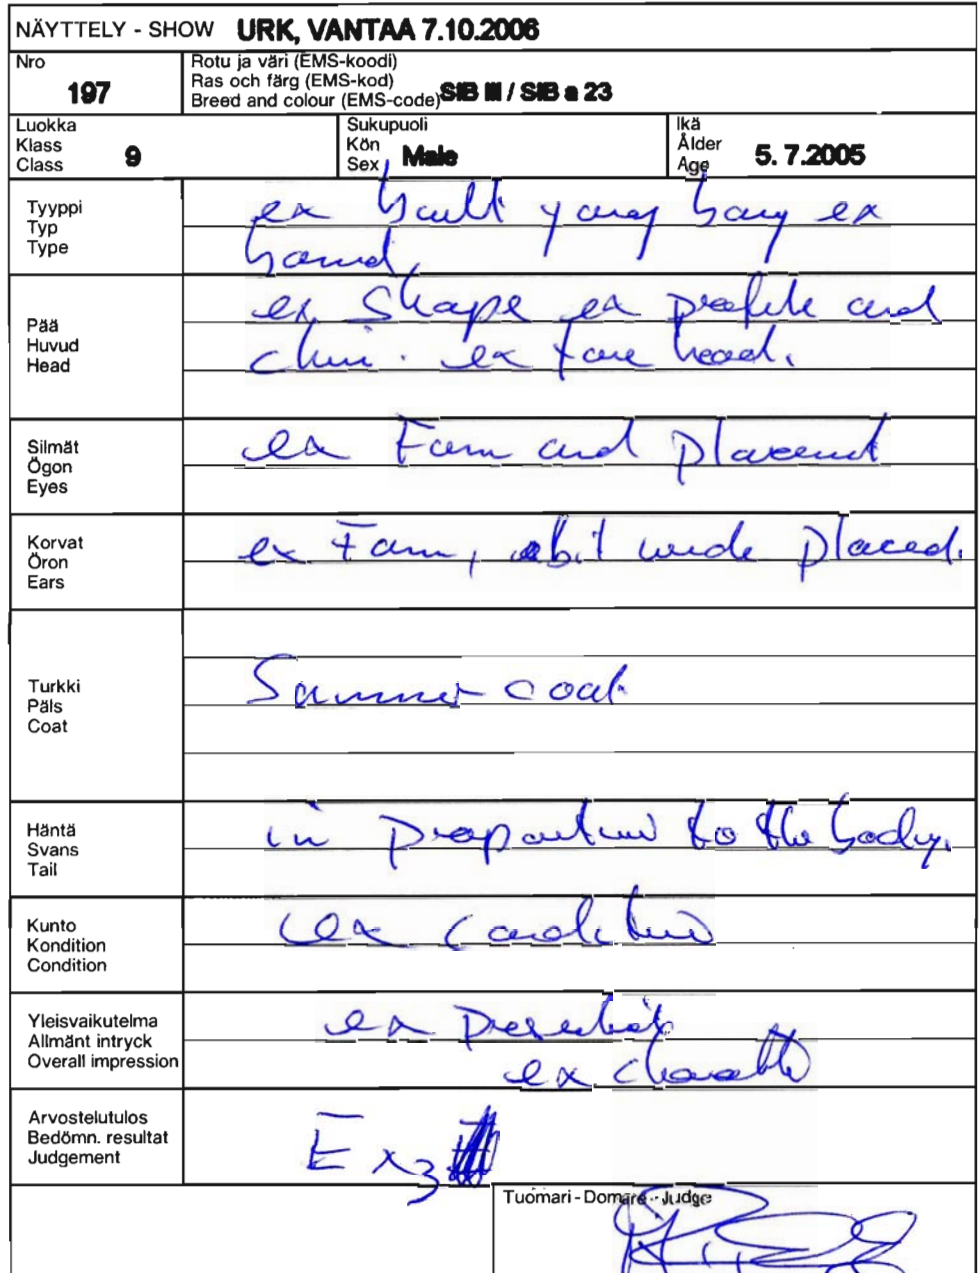 NÄYTTELY - SHOW URK, VANTAA 7.10.2006
Nro
197
Rotu ja väri (EMS-koodi)
Ras och färg (EMS-kod)
Breed and colour (EMS-code) SIB III / SIB a 23
Luokka
Klass
Class 9
Sukupuoli
Kön
Sex Male
Ikä
Ålder
Age 5. 7.2005
Tyyppi
Typ
Type
ex built young ex
Pää
Huvud
Head
ex Shape ex profile and
chin. ex fore head.
Silmät
Ögon
Eyes
ex Form and placement
Korvat
Öron
Ears
ex Form, abit wide placed.
Turkki
Päls
Coat
Summer coat
Häntä
Svans
Tail
in proportion to the body.
Kunto
Kondition
Condition
ex condition
Yleisvaikutelma
Allmänt intryck
Overall impression
ex
ex
Arvostelutulos
Bedömn. resultat
Judgement
Ex3
Tuomari - Domare - Judge